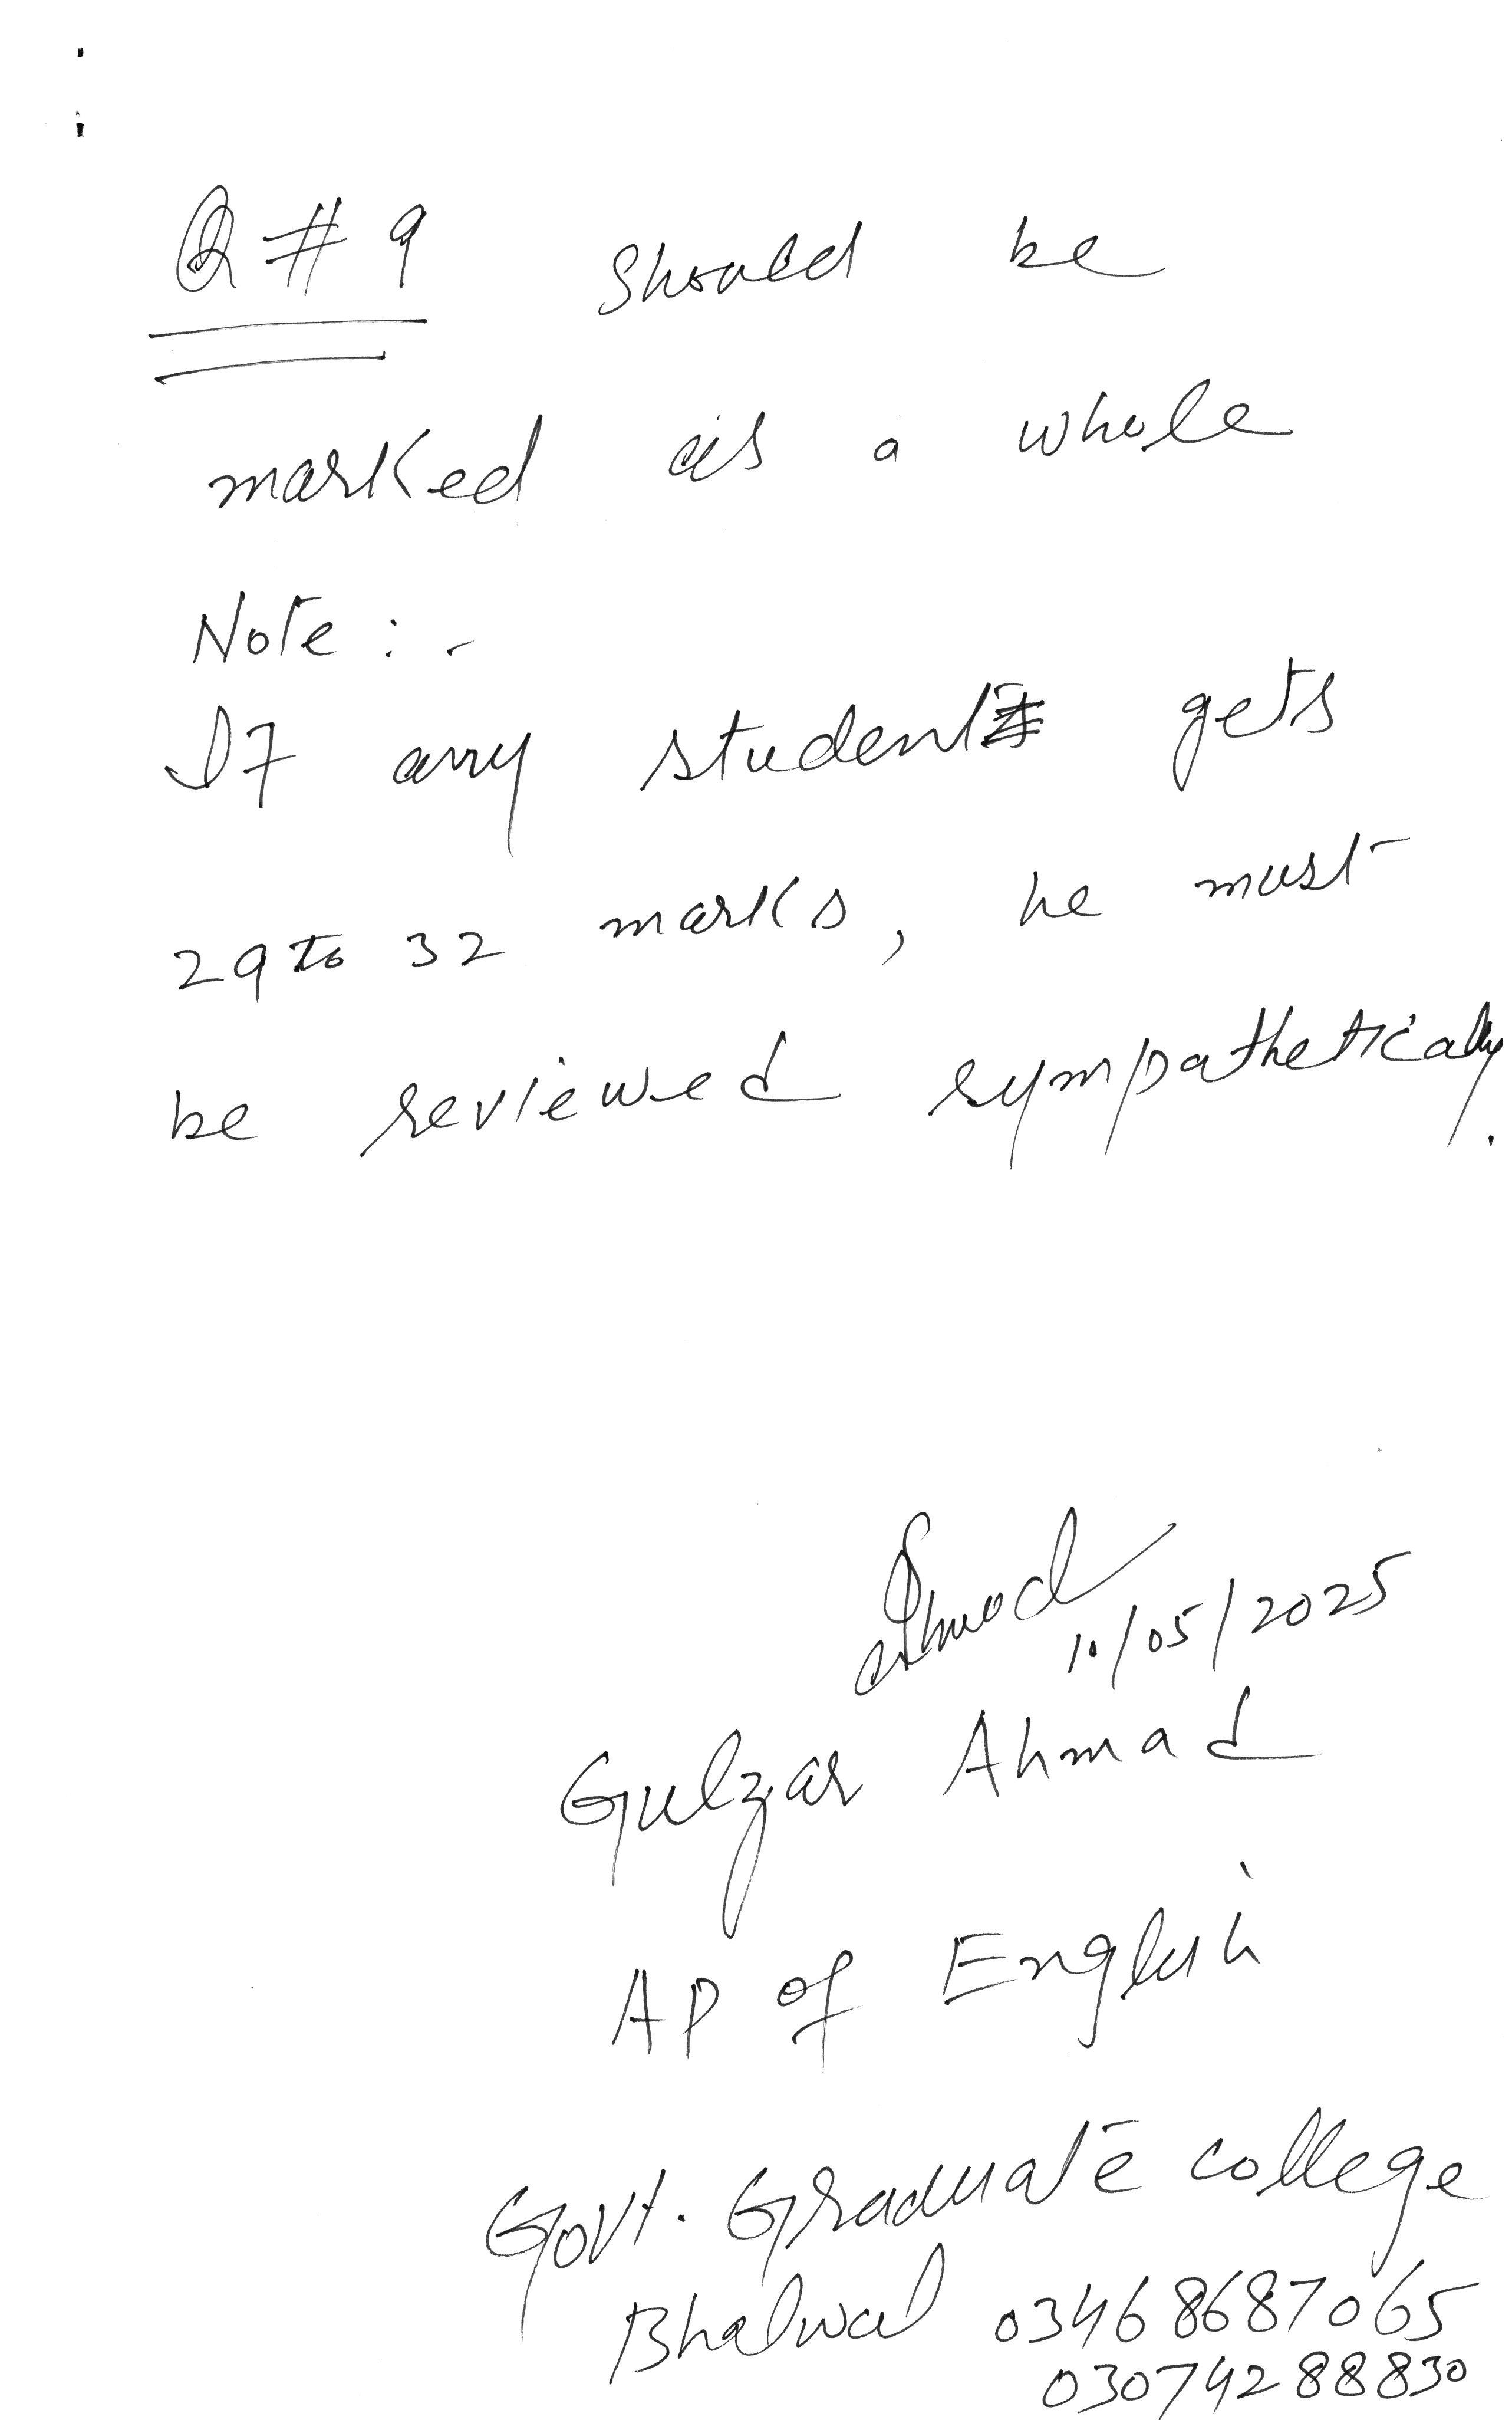 Q # 9 should be
marked as a whole
Note : -
If any student gets
29 to 32 marks, he must
be reviewed sympathetically.
Ahmad 10/05/2025
Gulzar Ahmad
AP of English
Govt. Graduate college
Bhalwal 03468687065
03074288830